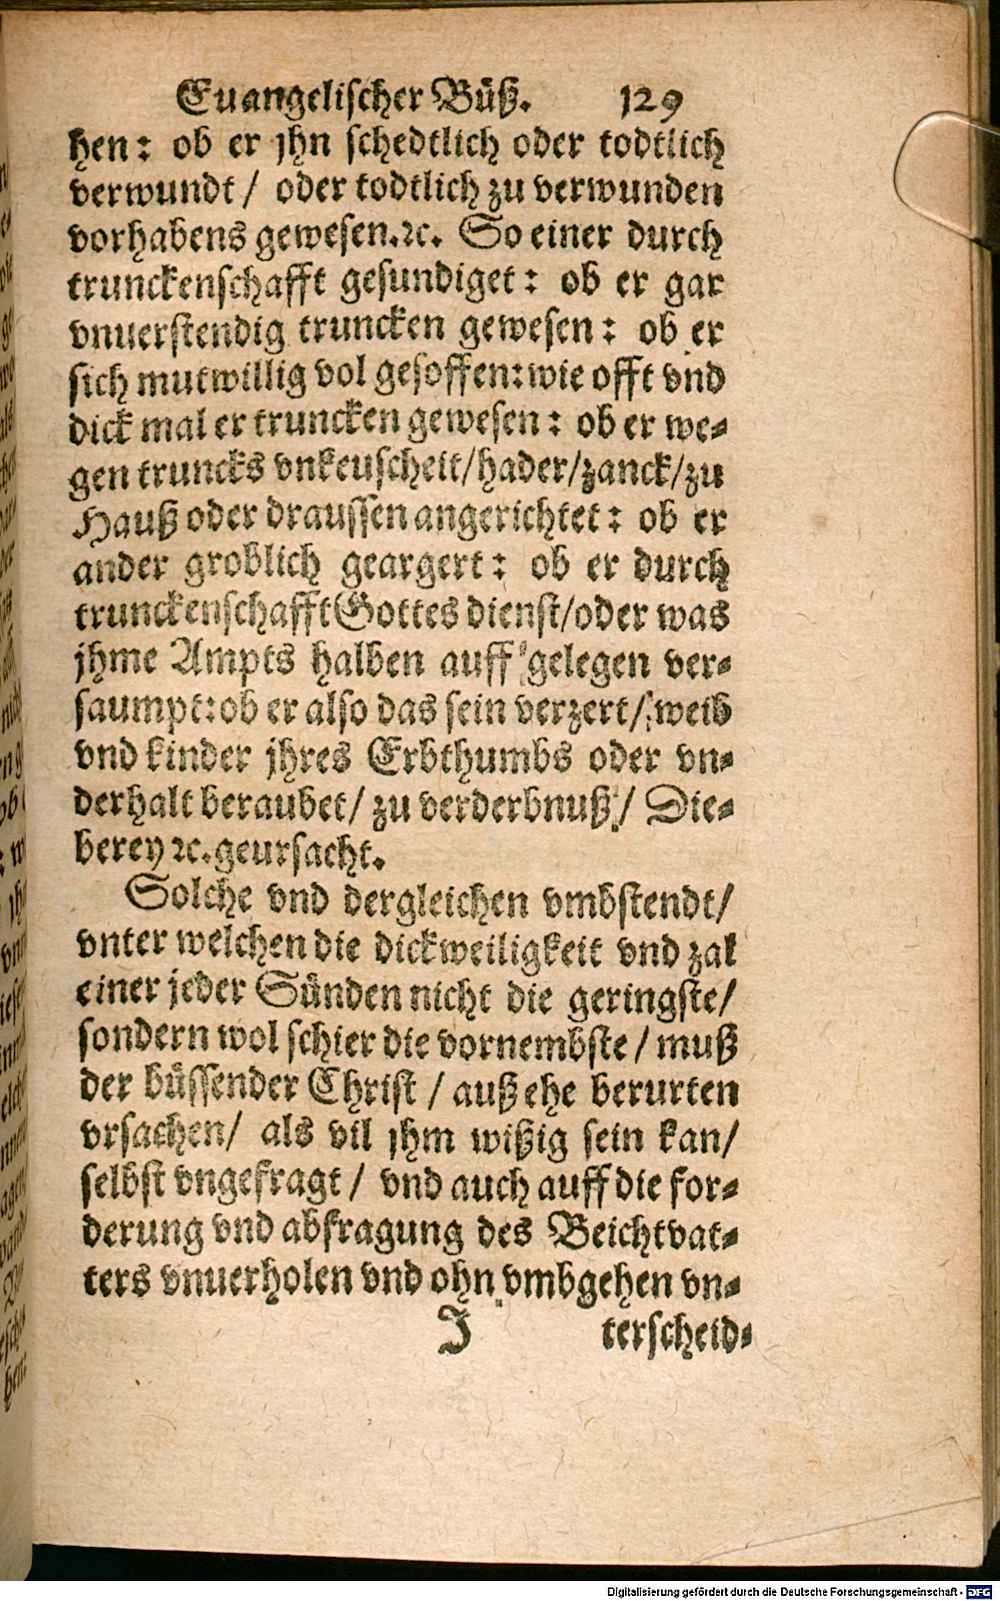 Euangelischer Büß. 129
hen: ob er jhn schedtlich oder todtlich
verwundt/ oder todtlich zu verwunden
vorhabens gewesen.ꝛc. So einer durch
trunckenschafft gesundiget: ob er gar
vnuerstendig truncken gewesen: ob er
sich mutwillig vol gesoffen: wie offt vnd
dick mal er truncken gewesen: ob er we-
gen truncks vnkeuscheit/hader/zanck/zu
Hauß oder draussen angerichtet: ob er
ander groblich geargert: ob er durch
trunckenschafft Gottes dienst/oder was
jhme Ampts halben auff gelegen ver-
saumpt: ob er also das sein verzert/ weib
vnd kinder jhres Erbthumbs oder vn-
derhalt beraubet/ zu verderbnuß/ Die-
berey ꝛc. geursacht.
Solche vnd dergleichen vmbstendt/
vnter welchen die dickweiligkeit vnd zal
einer jeder Sünden nicht die geringste/
sondern wol schier die vornembste/ muß
der büssender Christ/ auß ehe berurten
vrsachen/ als vil jhm wißig sein kan/
selbst vngefragt/ vnd auch auff die for-
derung vnd abfragung des Beichtvat-
ters vnuerholen vnd ohn vmbgehen vn-
J terscheid-
Digitalisierung gefördert durch die Deutsche Forschungsgemeinschaft - DFG